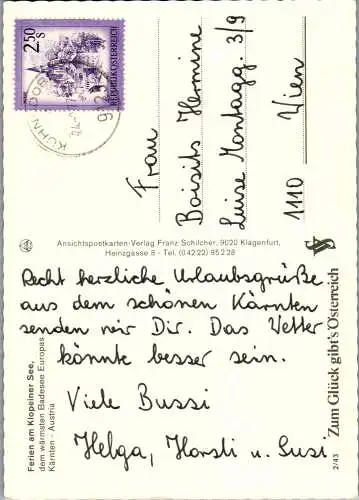 2.50 S
REPUBLIK ÖSTERREICH
KÜHNSDORF
Frau
Boisits Hermine
Luise Montagg. 3/9
1110 Wien
Ansichtspostkarten-Verlag Franz Schilcher, 9020 Klagenfurt,
Heinzgasse 8 - Tel. (04222) 85228
Recht herzliche Urlaubsgrüße
aus dem schönen Kärnten
senden wir Dir. Das Wetter
könnte besser sein.
Viele Bussi
Helga, Horsti u. Susi
Ferien am Klopeiner See,
dem wärmsten Badesee Europas
Kärnten - Austria
Zum Glück gibt's Österreich
2/43